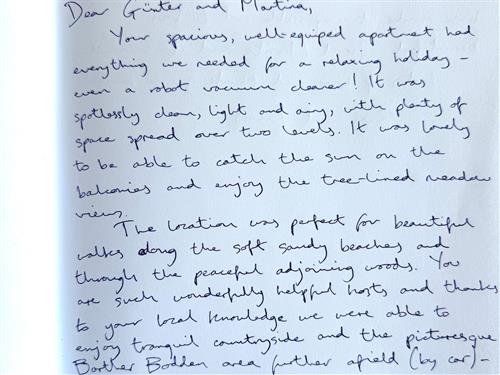 Dear Günter and Martina,
Your spacious, well-equiped apartment had
everything we needed for a relaxing holiday –
even a robot vacuum cleaner! It was
spotlessly clean, light and airy, with plenty of
space spread over two levels. It was lovely
to be able to catch the sun on the
balconies and enjoy the tree-lined meadow
views.
The location was perfect for beautiful
walks along the soft sandy beaches and
through the peaceful adjoining woods. You
are such wonderfully helpful hosts and thanks
to your local knowledge we were able to
enjoy tranquil countryside and the picturesque
Barther Bodden area further afield (by car) –